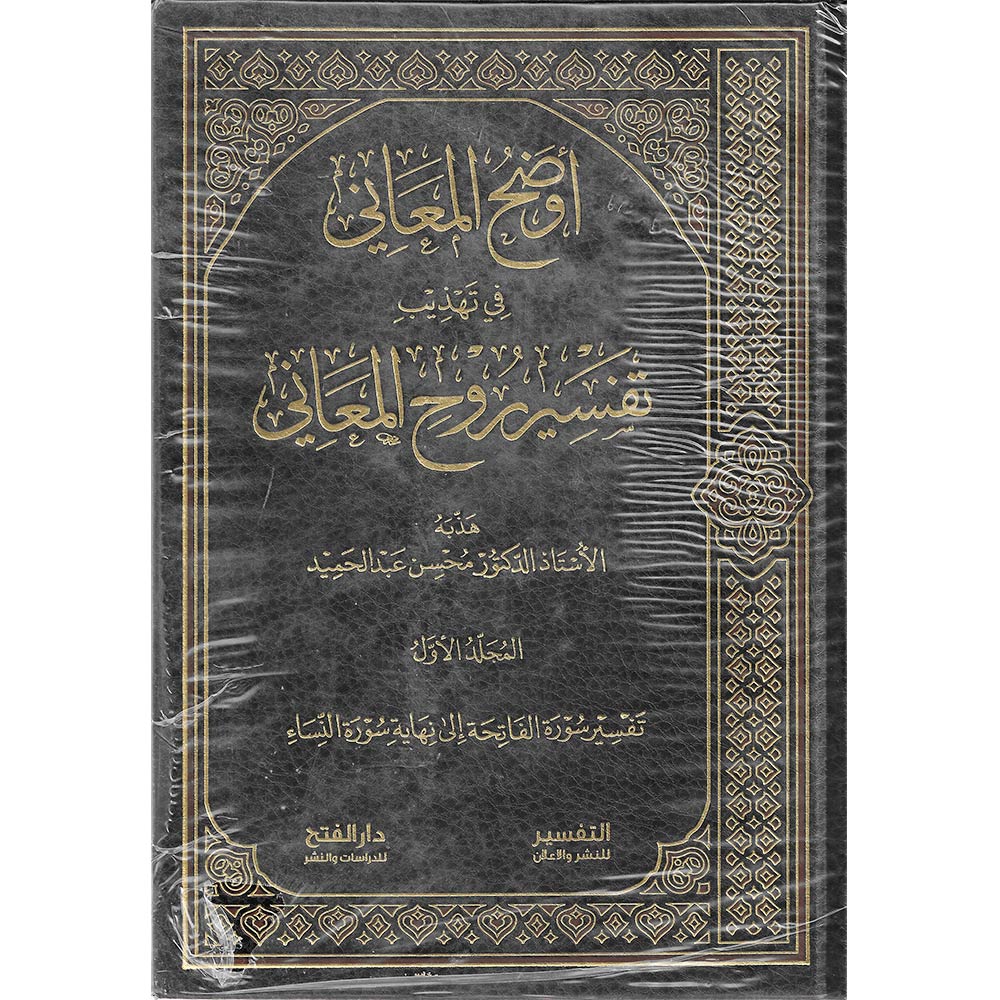 أَوْضَحُ المَعَانِي
فِي تَهْذِيْبِ
تَفْسِيْر رُوْحِ المَعَانِي
هَذَّبَهُ
الأُسْتَاذ الدَّكتُوْر مُحْسِن عَبْد الحَمِيْد
المُجَلَّدُ الأوّلُ
تَفْسِيْر سُوْرَة الفَاتِحَة إِلىٰ نِهَايَةِ سُوْرَة النِّسَاءِ
التفسير
للنشر والإعلان
دار الفتح
للدراسات والنشر